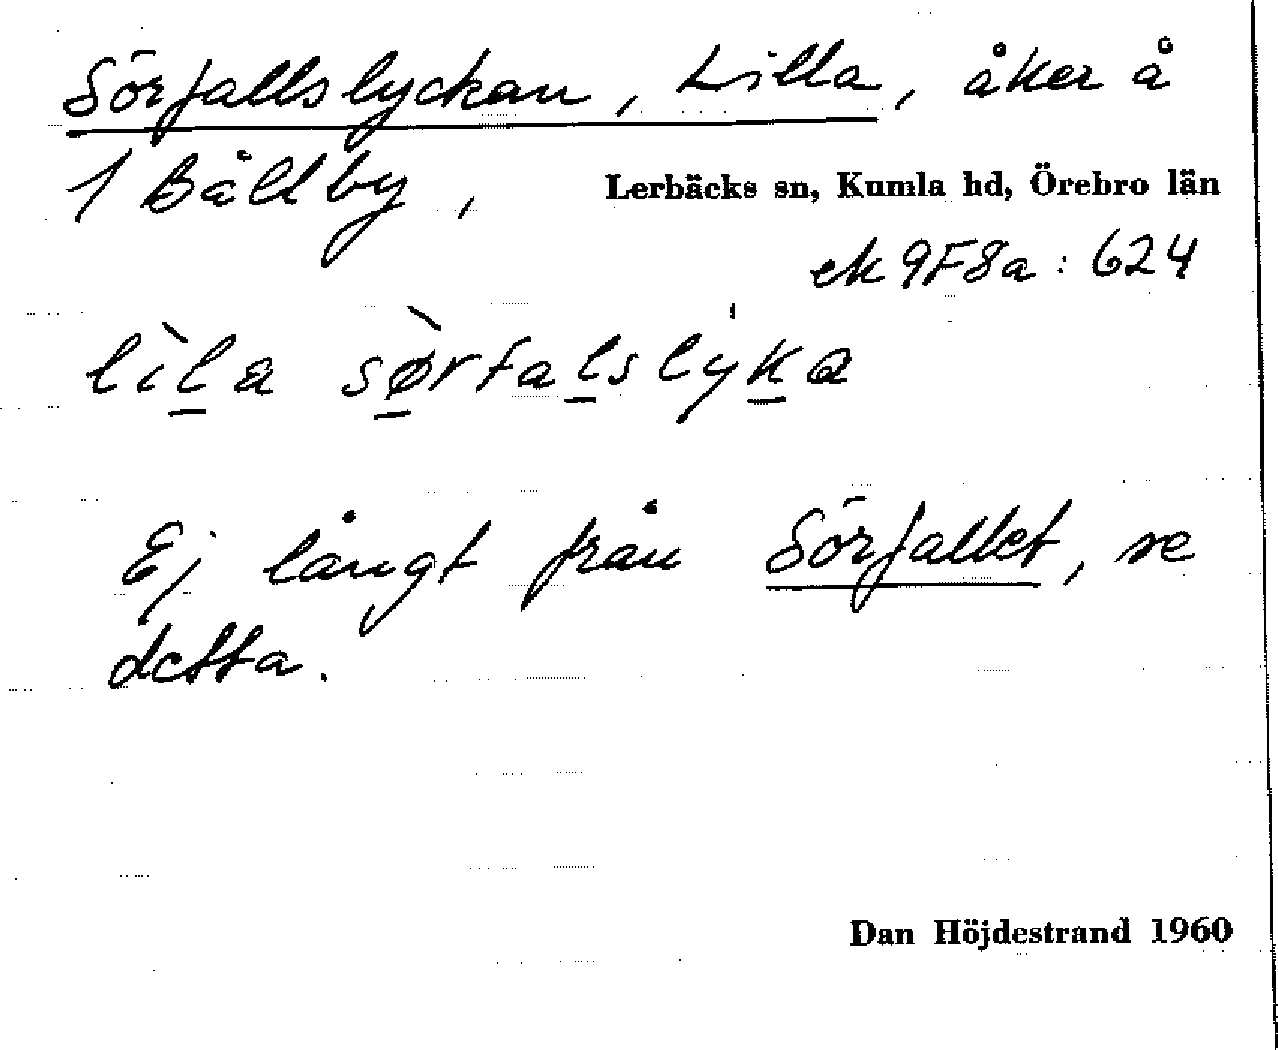 Sörfallslyckan, Lilla, åker å
1 Bältby, Lerbäcks sn, Kumla hd, Örebro län
ek 9F8a: 624
lìla sø̀rfalslyka
Ej långt från Sörfallet, se
detta.
Dan Höjdestrand 1960